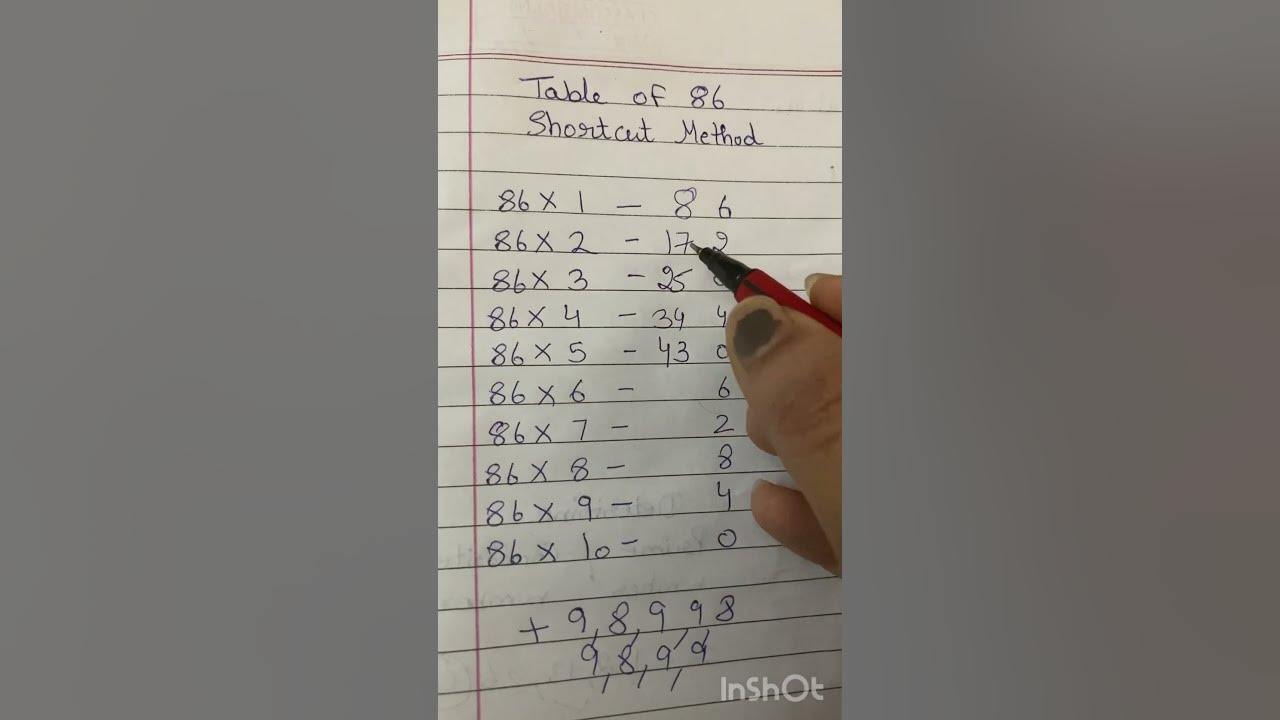 Table of 86
Shortcut Method
86 × 1 — 8 6
86 × 2 – 17 2
86 × 3 – 25
86 × 4 – 34 4
86 × 5 – 43 0
86 × 6 – 6
86 × 7 – 2
86 × 8 – 8
86 × 9 – 4
86 × 10 – 0
+ 9, 8, 9 9 8
9, 8, 9, 9
InShOt